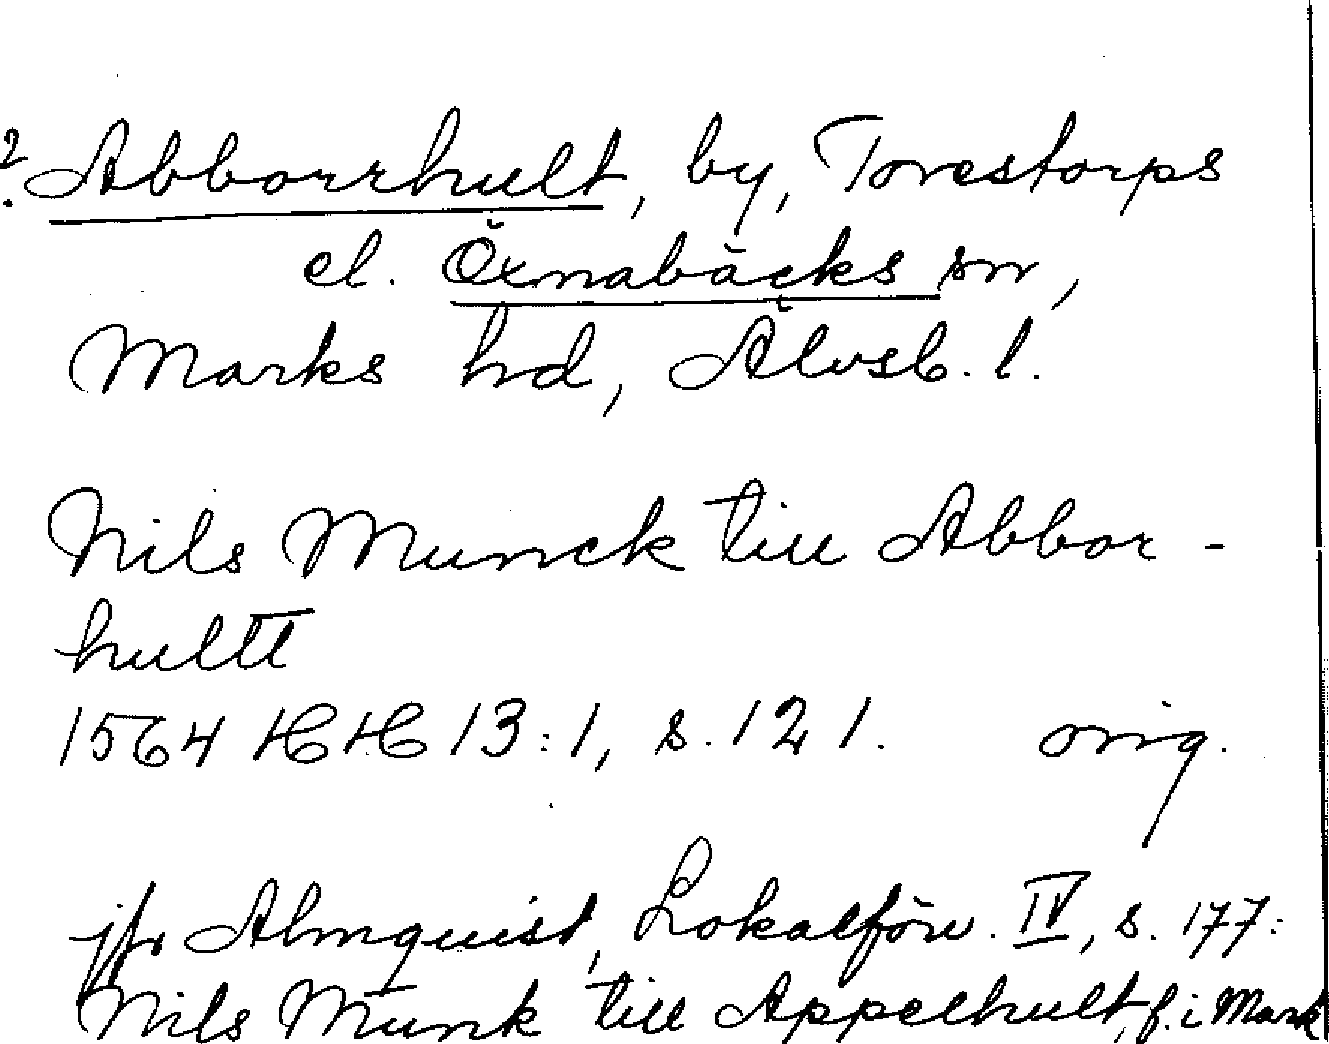 ? Abborrhult, by, Torestorps
el. Öxnabäcks sn,
Marks hd, Älvsb. l.
Nils Munck till Abbor-
hultt
1564 HH 13:1, s. 121. orig.
jfr Almquist, Lokalförv. IV, s. 177:
Nils Munk till Appelhult, f. i Mark